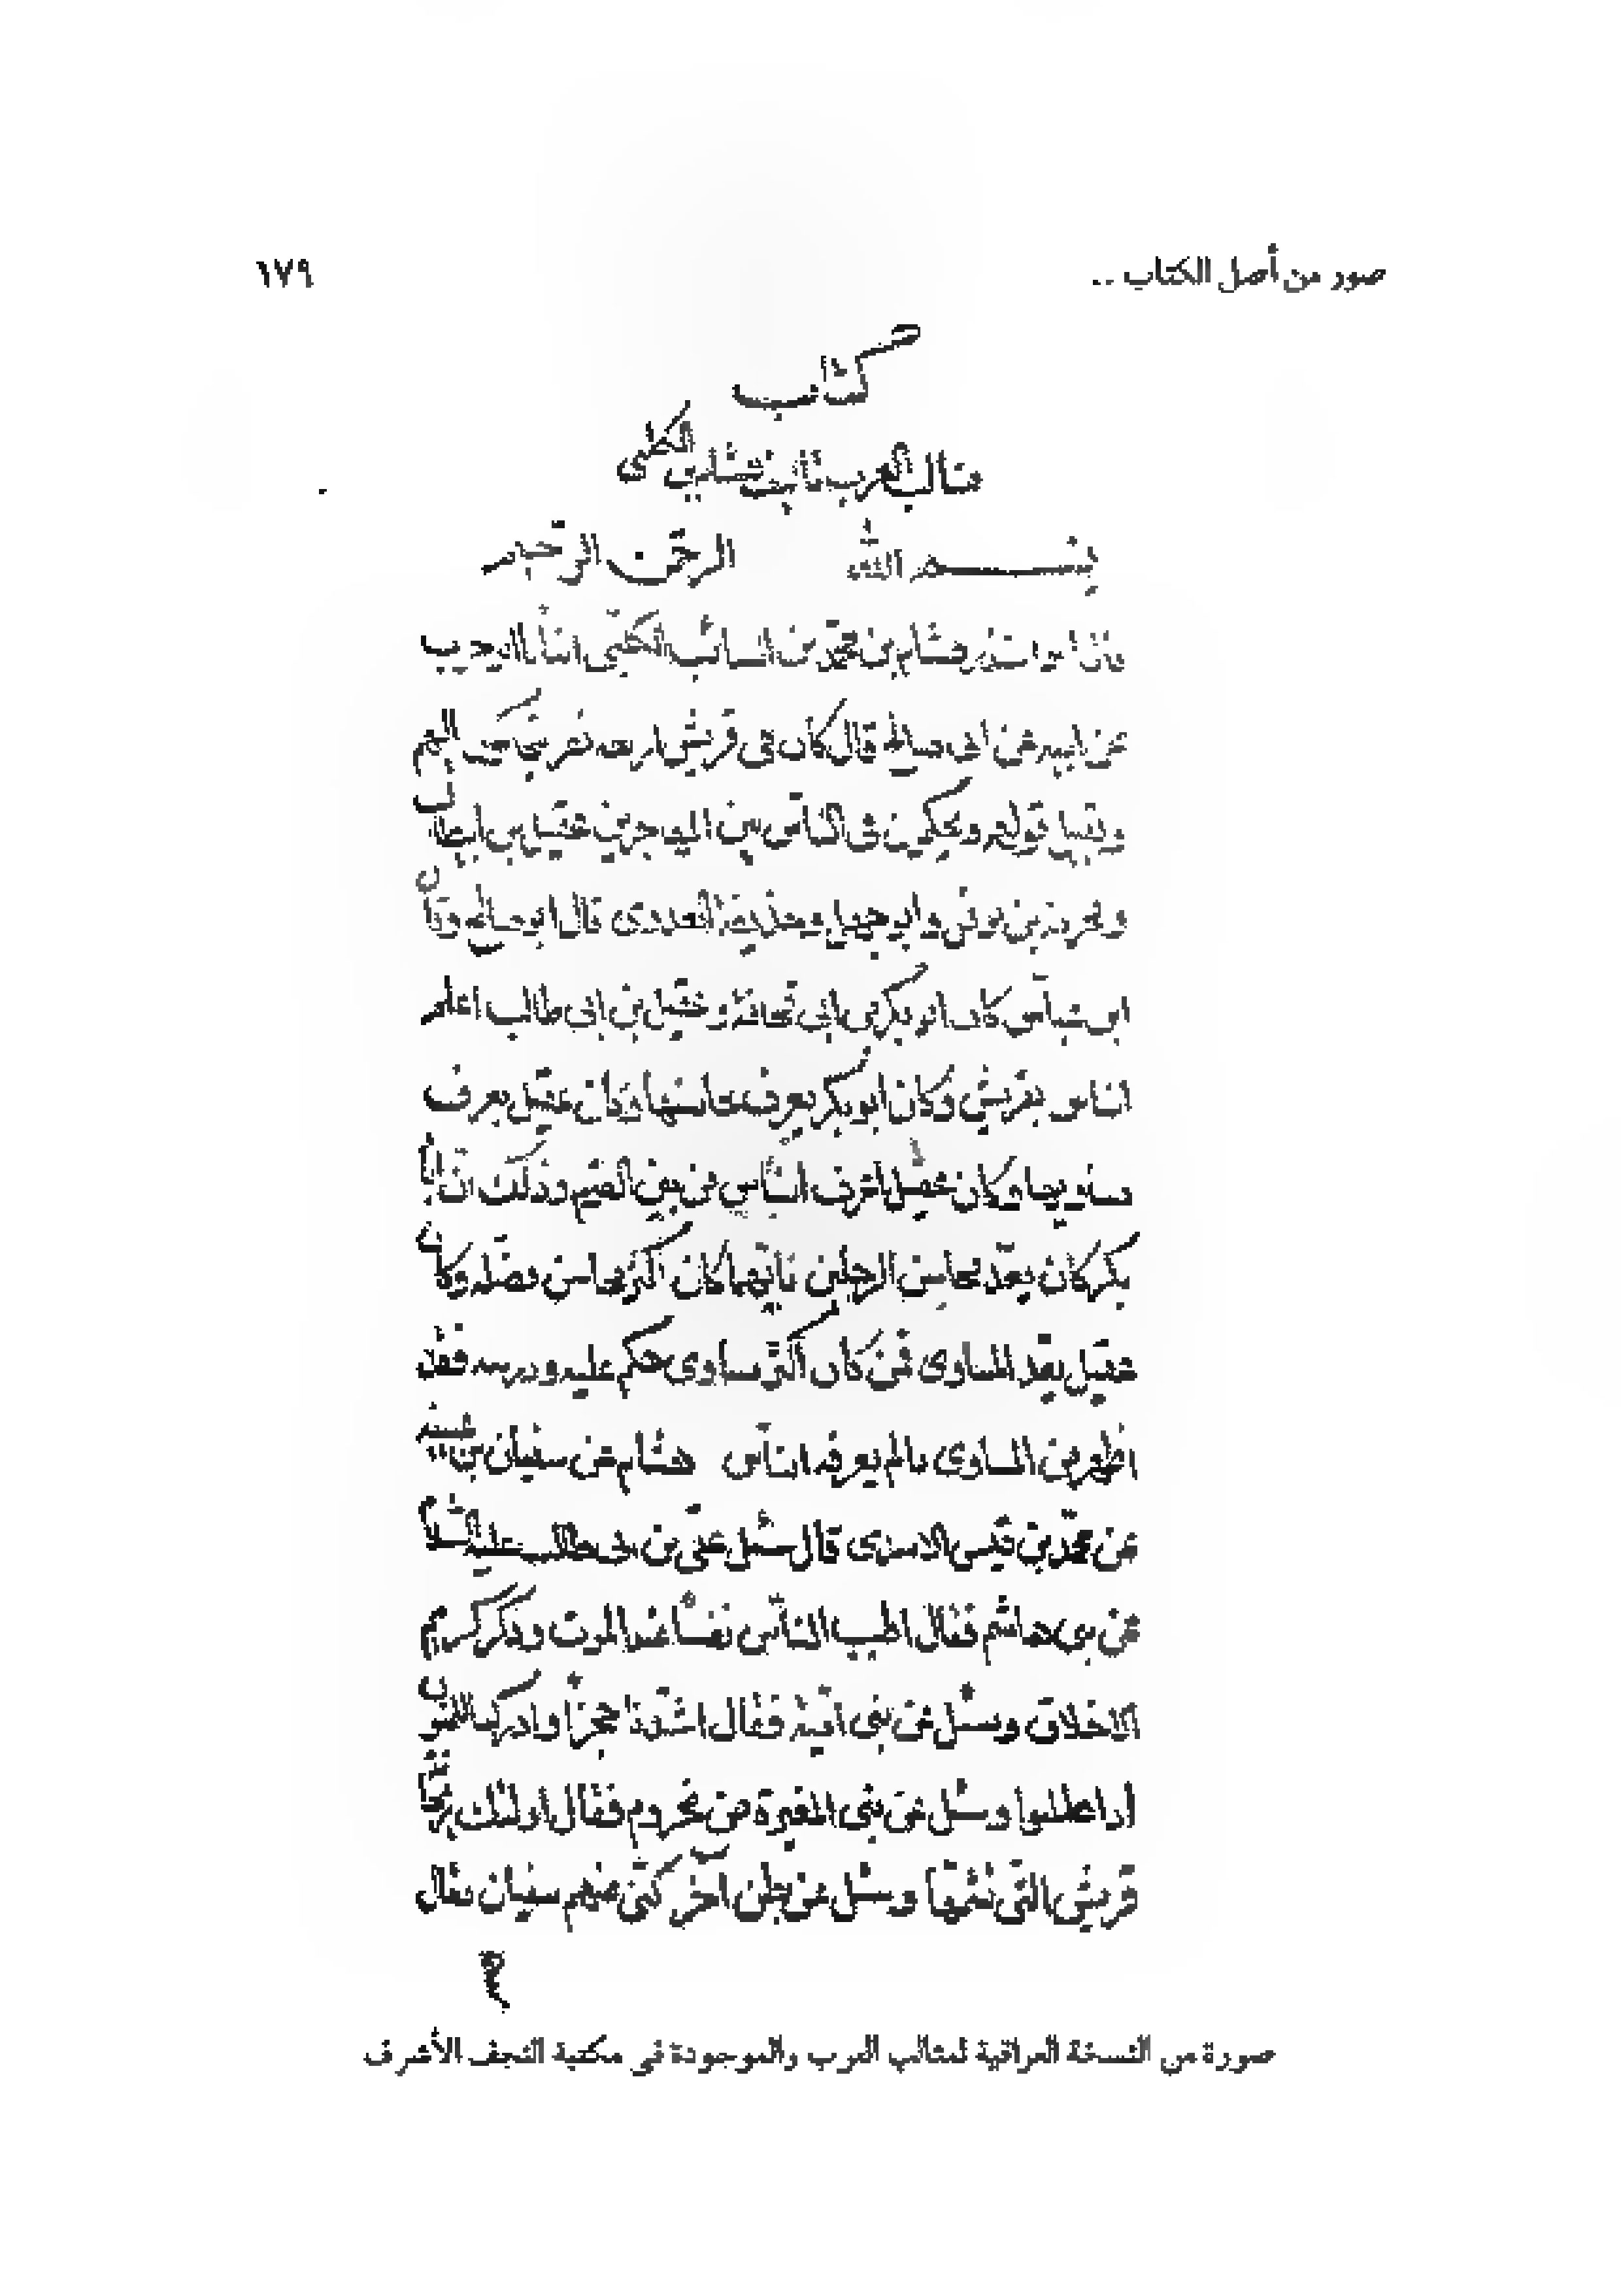 صور من أصل الكتاب ..
١٧٩
كتاب
مثالب العرب تأليف هشام بن الكلبي
بسم الله الرحمن الرحيم
هشام بن محمد بن السائب الكلبي
عن ابيه عن ابي صالح قال كان في قريش اربعه نفر يتحاكمون اليهم
قولهم ويحكمون في الناس من المهاجرين عقيل بن ابي طالب
ومخرمة بن نوفل وابو جهم وحذيفة العدوى قال ابو صالح وقال
ابن عباس كان ابو بكر بن ابي قحافة وعقيل بن ابي طالب اعلم
الناس بقريش وكان ابو بكر يعرف محاسنها وكان عقيل يعرف
مساويها وكان عقيل اعرف الناس من بين القيم وذلك ان ابا
بكر كان يعد محاسن الرجلين فايهما كان اكثر محاسن فضله وكان
عقيل يعد المساوى فمن كان اكثر مساوى حكم عليه
اظهر من المساوى مالم يعرفه الناس هشام عن سفيان بن عيينه
عن محمد بن قيس الاسدى قال سئل على بن ابى طالب عليه السلام
عن بنى هاشم فقال اطيب الناس نفسا عند الموت وذكر كريم
الاخلاق وسئل عن بني امية فقال اشدنا حجزا وادركنا للامور
اذا طلبوا وسئل عن بنى المغيرة من مخزوم فقال اولئك ريحانة
قريش التي نشمها وسئل عن بطن آخر كنى عنهم سفيان فقال
صورة من النسخة العراقية لمثالب العرب والموجودة في مكتبة النجف الأشرف